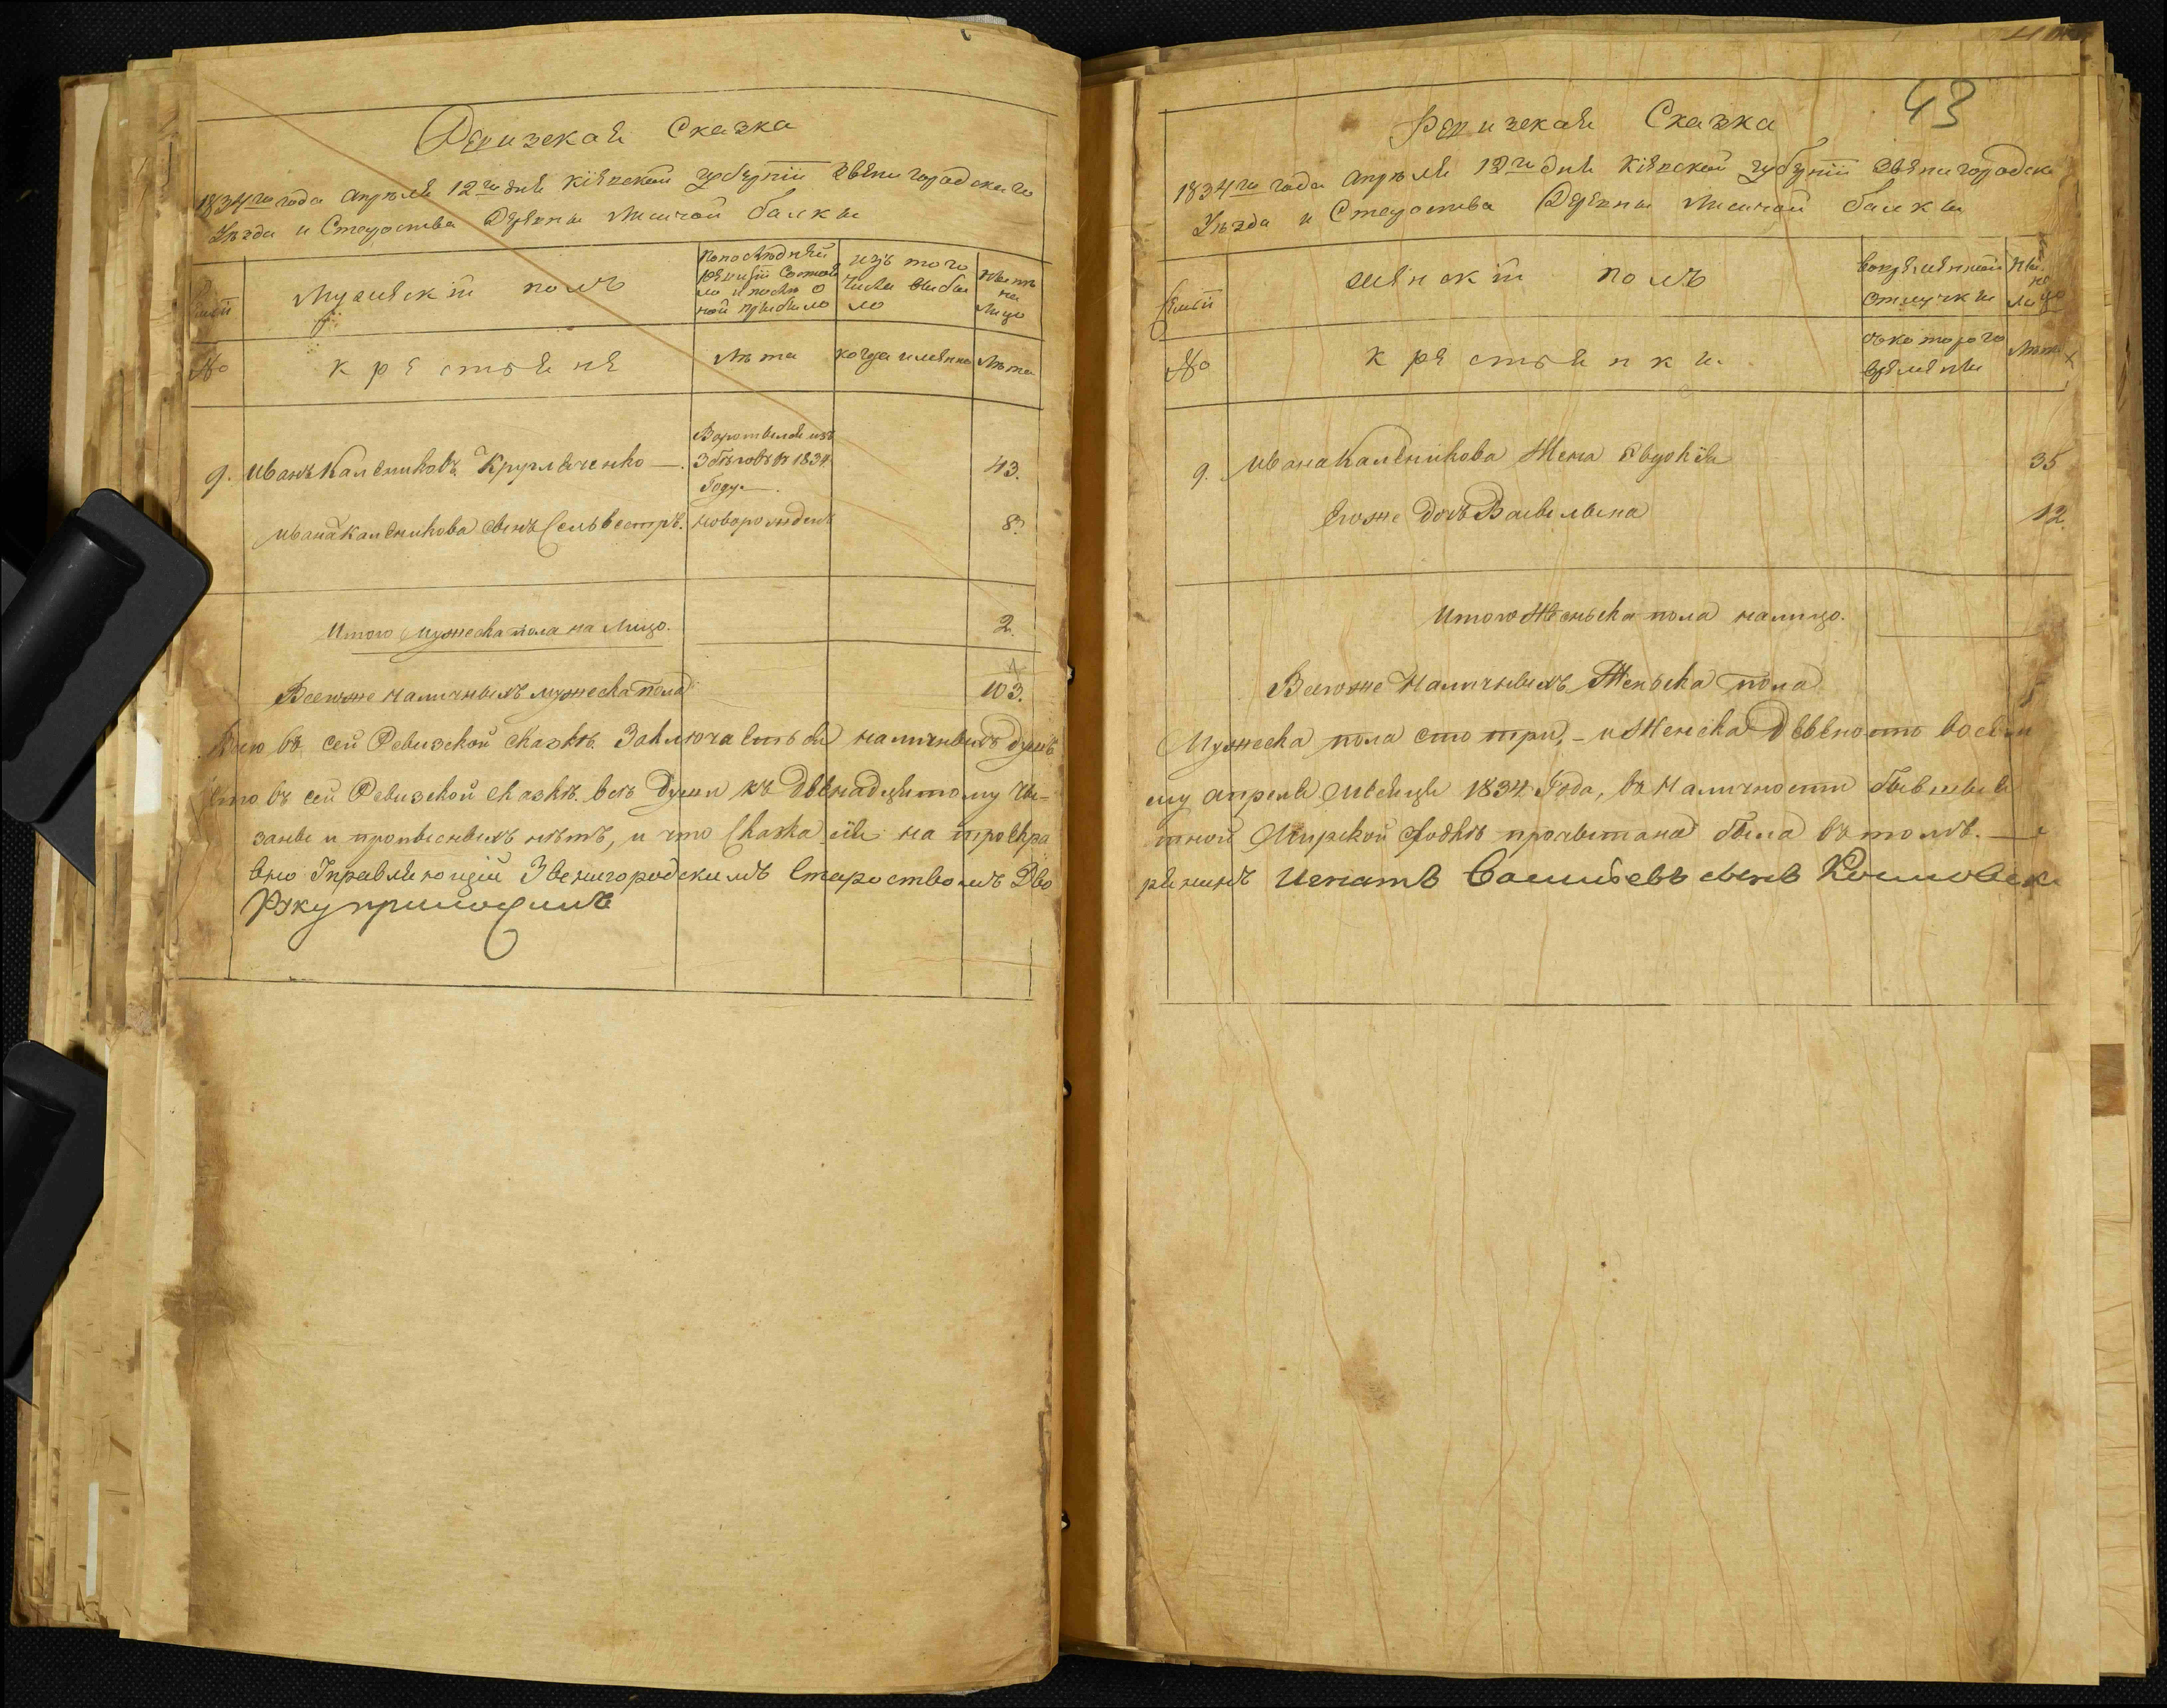 Ревизская Сказка
1834го года апреля 12го дня Кіевской губерніи Звенигородскаго
Уезда и Староства Деревни Лисичой балки
Семьи
Мужескій полъ
По последней ревизіи состояло и после оной прибыло
изъ того числа выбыло
Ныне на лицо
No
крестьяне
Лета
когда именно
Лета
9. Иванъ Калениковъ Кругляченко — Воротился изъ Збеговъ въ 1834 Году 43.
Ивана Каленикова сынъ Сельвестръ. новорожденъ 8.
Итого мужеска пола на Лицо. 2.
Всегоже наличныхъ мужеска пола 103.
Всего въ сей Ревизской сказкѣ Заключается наличныхъ душъ
Что въ сей Ревизской сказкѣ всѣ Души къ Двенадцятому Чи-
заны и прописныхъ нѣтъ, и что Сказка сія на
Управляющій Звенигородскимъ Староствомъ Дво
Руку приложилъ
43
Ревизская Сказка
1834го года апреля 12го дня Кіевской губерніи Звенигородска
Уезда и Староства Деревни Лисичой балки
Семьи
женскій полъ
во временной отлучки
Ныне на лицо
No
крестьянки
съ которого времени
Лета
9. Ивана Каленикова Жена Евдокія 35
Егоже дочь 12.
Итого Женьска пола налицо.
Всегоже Наличныхъ Женьска пола
Мужеска пола сто три, - и Женска Девеносто восемъ
слу апреля Месяця 1834 Года, въ Наличности бывшые
Мирской сходкѣ прочитана была въ томъ. —
рянинъ Игнатъ сынъ